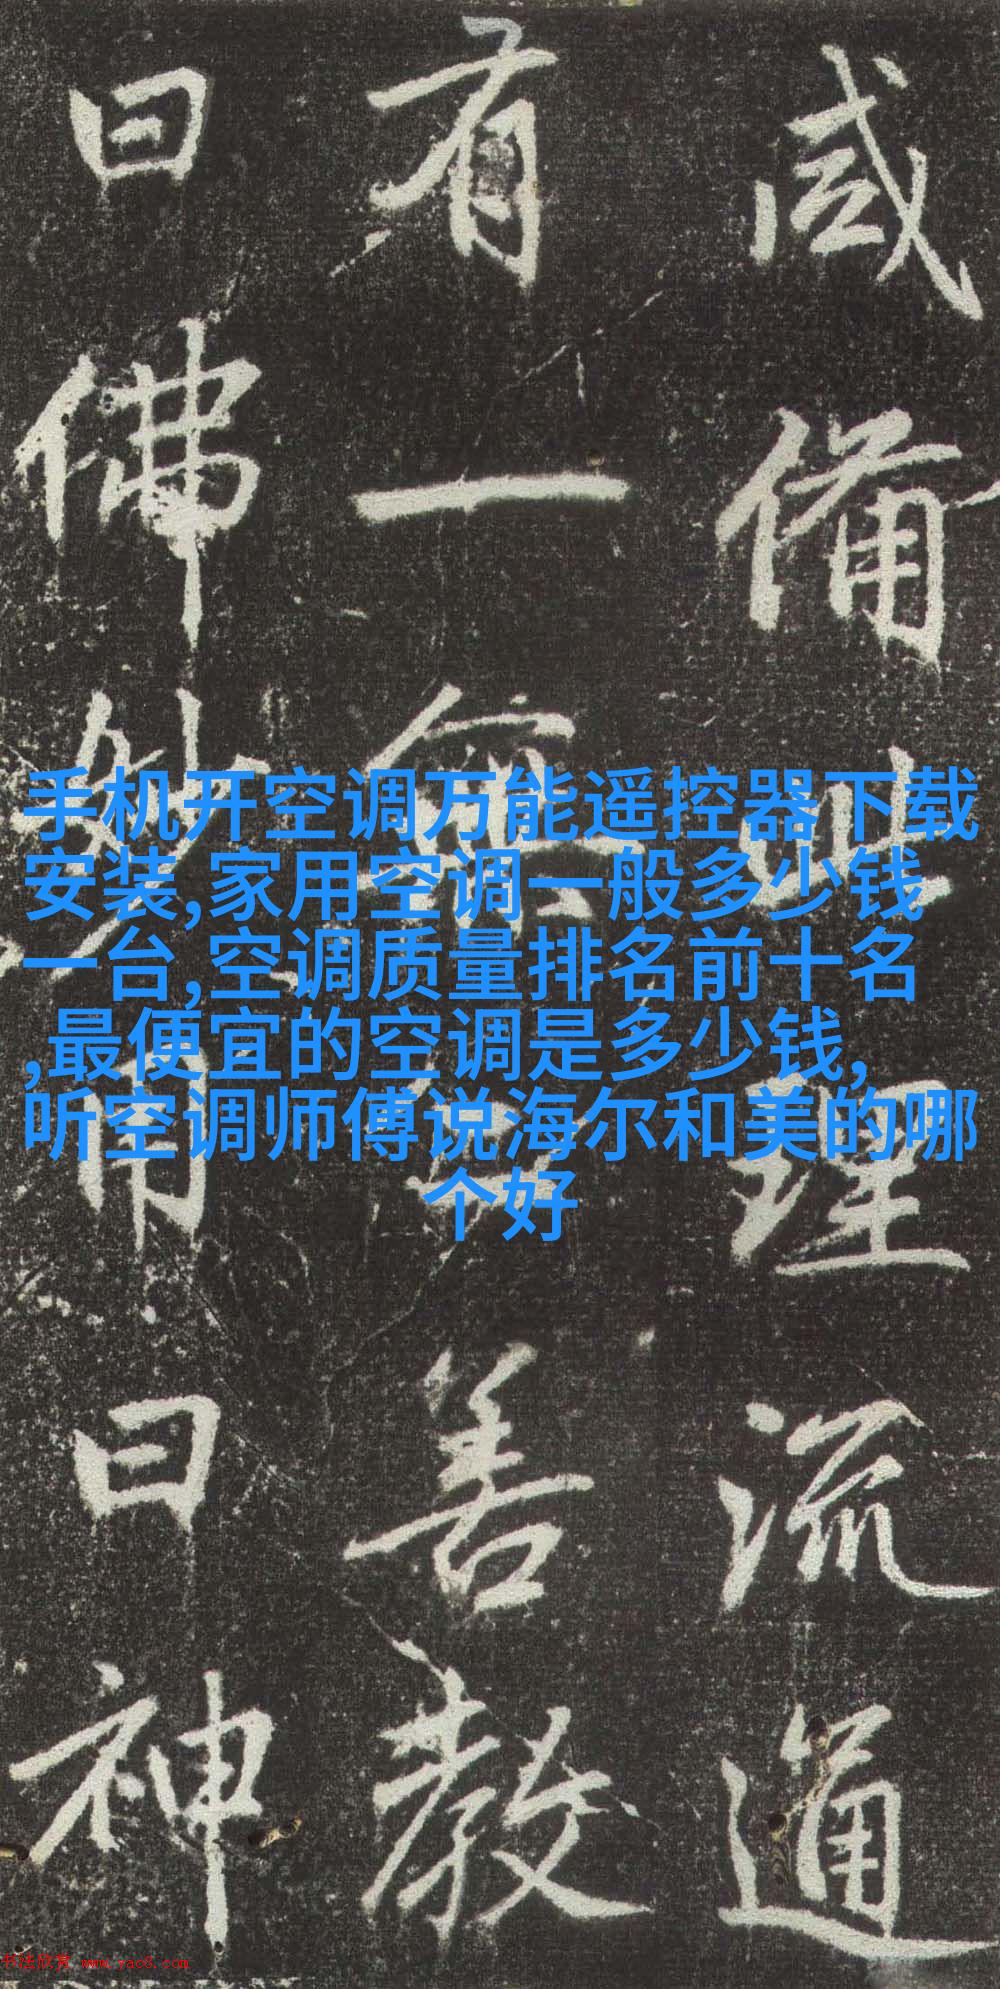 咸備此理流通
有一寶善教
曰佛妙用曰神
手机开空调万能遥控器下载
安装,家用空调一般多少钱
一台,空调质量排名前十名
,最便宜的空调是多少钱,
听空调师傅说海尔和美的哪
个好
书法欣赏 www.yac8.com